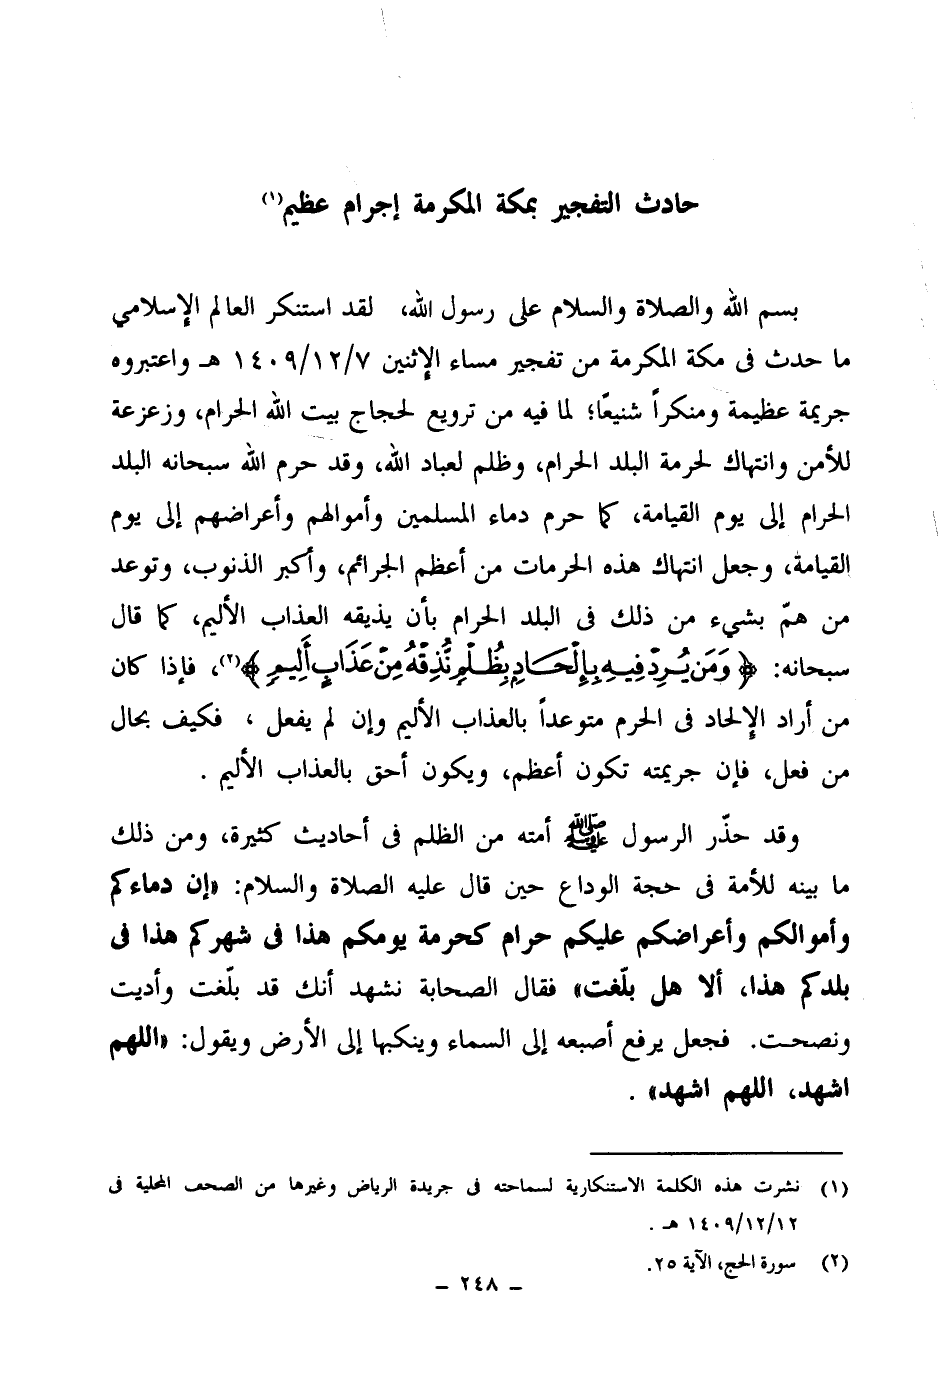 حادث التفجير بمكة المكرمة إجرام عظيم(١)
بسم الله والصلاة والسلام على رسول الله، لقد استنكر العالم الإسلامي
ما حدث فى مكة المكرمة من تفجير مساء الإثنين ١٤٠٩/١٢/٧ هـ واعتبروه
جريمة عظيمة ومنكراً شنيعًا؛ لما فيه من ترويع لحجاج بيت الله الحرام، وزعزعة
للأمن وانتهاك لحرمة البلد الحرام، وظلم لعباد الله، وقد حرم الله سبحانه البلد
الحرام إلى يوم القيامة، كما حرم دماء المسلمين وأموالهم وأعراضهم إلى يوم
القيامة، وجعل انتهاك هذه الحرمات من أعظم الجرائم، وأكبر الذنوب، وتوعد
من همّ بشيء من ذلك فى البلد الحرام بأن يذيقه العذاب الأليم، كما قال
سبحانه: ﴿وَمَن يُرِدْ فِيهِ بِإِلْحَادٍ بِظُلْمٍ نُّذِقْهُ مِنْ عَذَابٍ أَلِيمٍ﴾(٢)، فإذا كان
من أراد الإلحاد فى الحرم متوعداً بالعذاب الأليم وإن لم يفعل ، فكيف بحال
من فعل، فإن جريمته تكون أعظم، ويكون أحق بالعذاب الأليم .
وقد حذّر الرسول ﷺ أمته من الظلم فى أحاديث كثيرة، ومن ذلك
ما بينه للأمة فى حجة الوداع حين قال عليه الصلاة والسلام: «إن دماءكم
وأموالكم وأعراضكم عليكم حرام كحرمة يومكم هذا فى شهركم هذا فى
بلدكم هذا، ألا هل بلّغت» فقال الصحابة نشهد أنك قد بلّغت وأديت
ونصحت. فجعل يرفع أصبعه إلى السماء وينكبها إلى الأرض ويقول: «اللهم
اشهد، اللهم اشهد» .
(١) نشرت هذه الكلمة الاستنكارية لسماحته فى جريدة الرياض وغيرها من الصحف المحلية فى
١٤٠٩/١٢/١٢ هـ .
(٢) سورة الحج، الآية ٢٥.
– ٢٤٨ –